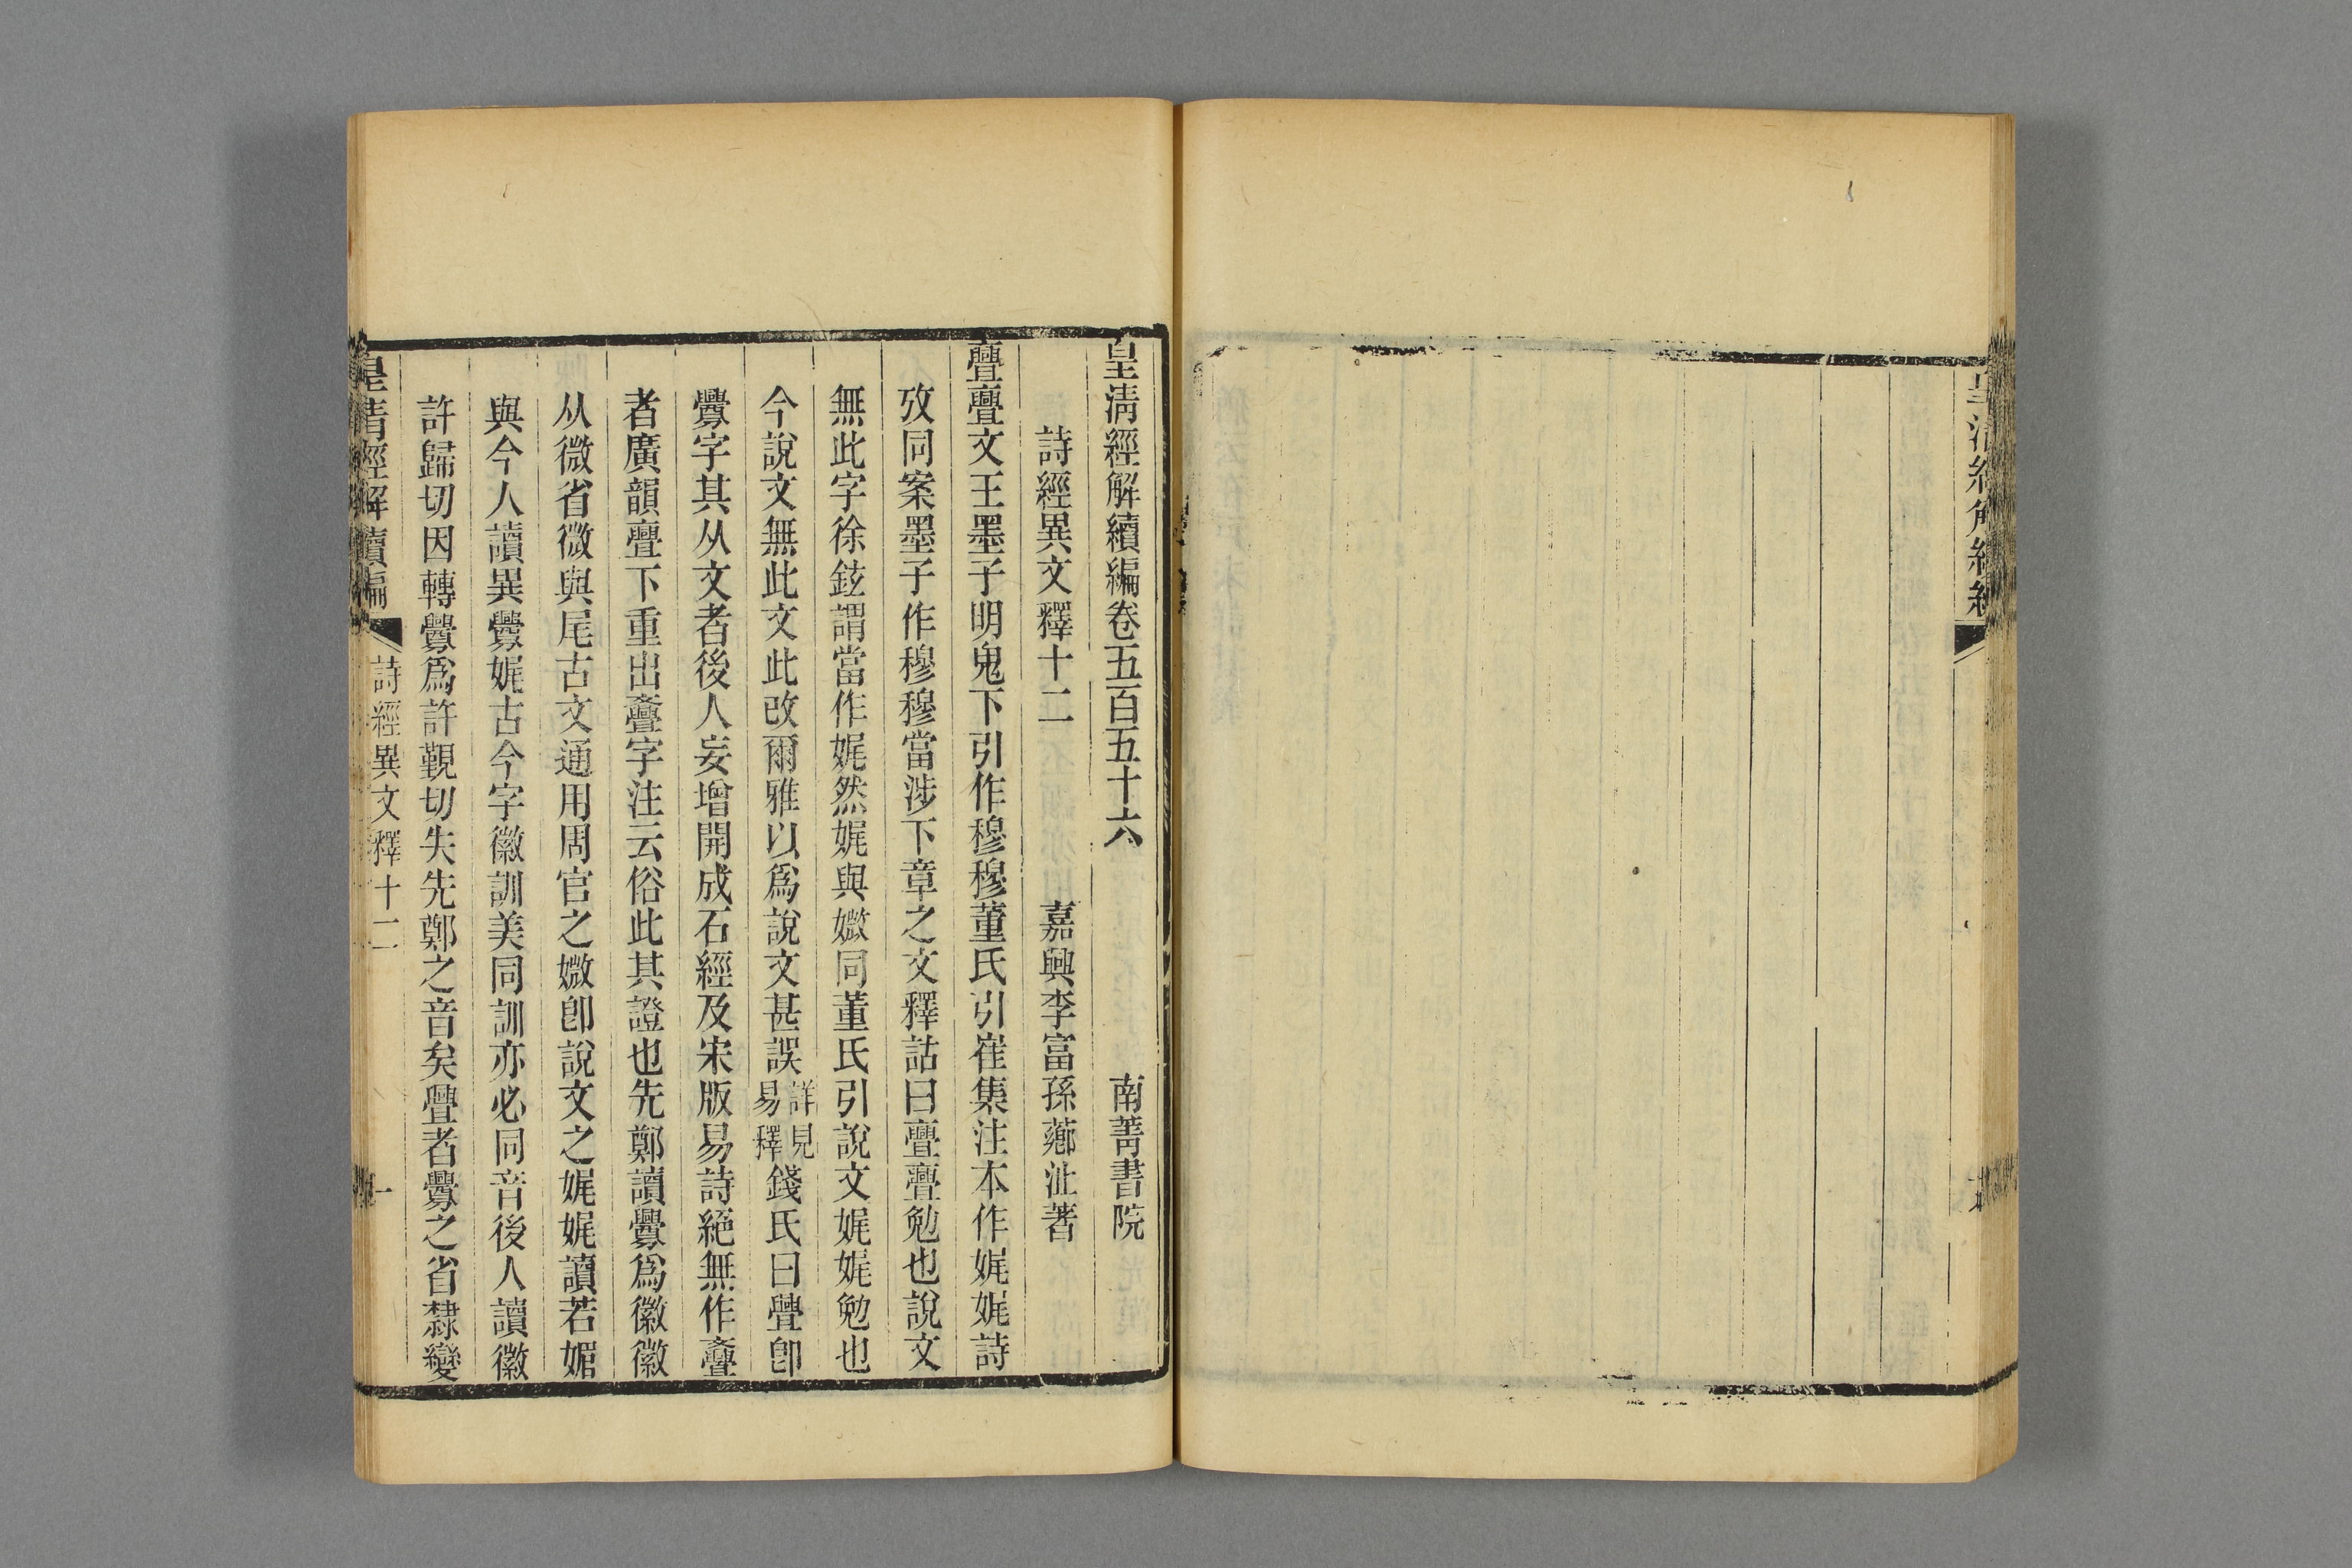 皇清經解續編卷五百五十六 南菁書院
詩經異文釋十二 嘉興李富孫薌沚著
亹亹文王墨子明鬼下引作穆穆董氏引崔集注本作娓娓詩
攷同案墨子作穆穆當涉下章之文釋詁曰亹亹勉也說文
無此字徐鉉謂當作娓然娓與媺同董氏引說文娓娓勉也
今說文無此文此改爾雅以爲說文甚誤詳見易釋錢氏曰亹卽
釁字其从文者後人妄增開成石經及宋版易詩絕無作斖
者廣韻亹下重出斖字注云俗此其證也先鄭讀釁爲徽徽
从微省微與尾古文通用周官之媺卽說文之娓娓讀若媚
與今人讀異釁娓古今字徽訓美同訓亦必同音後人讀徽
許歸切因轉釁爲許覲切失先鄭之音矣亹者釁之省隸變
皇清經解續編 詩經異文釋十二 一